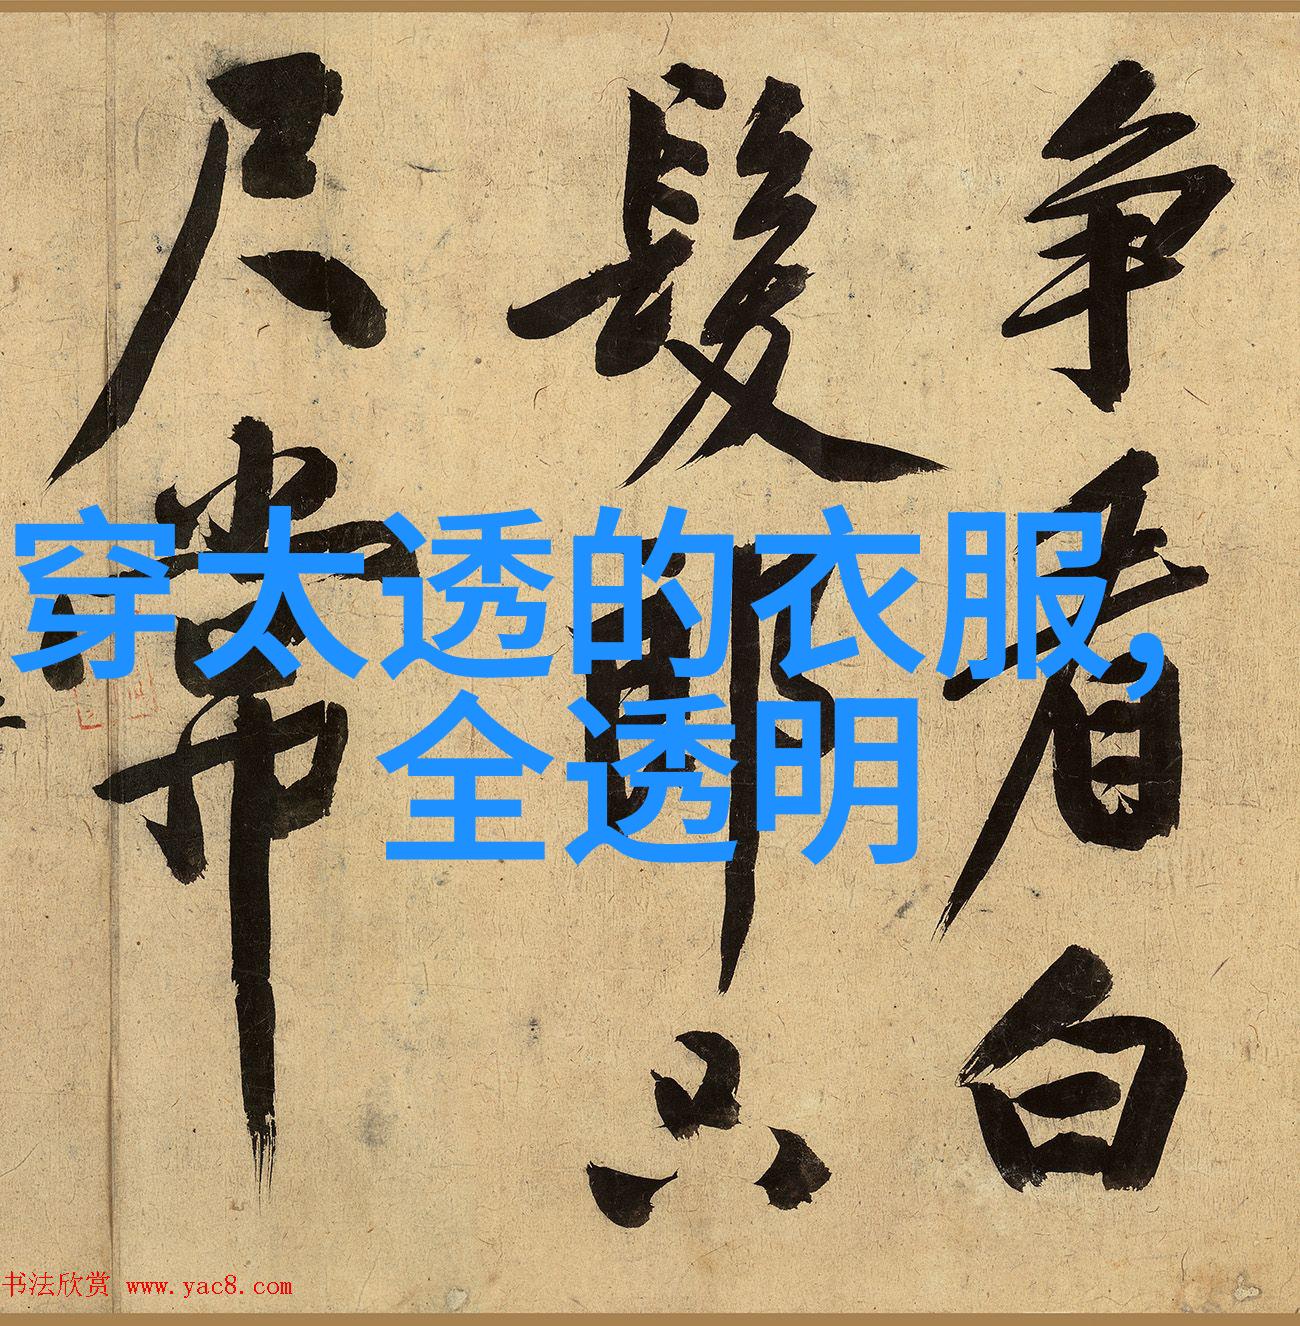 争看白
髮郎只
尺常
穿太透的衣服,
全透明
书法欣赏 www.yac8.com